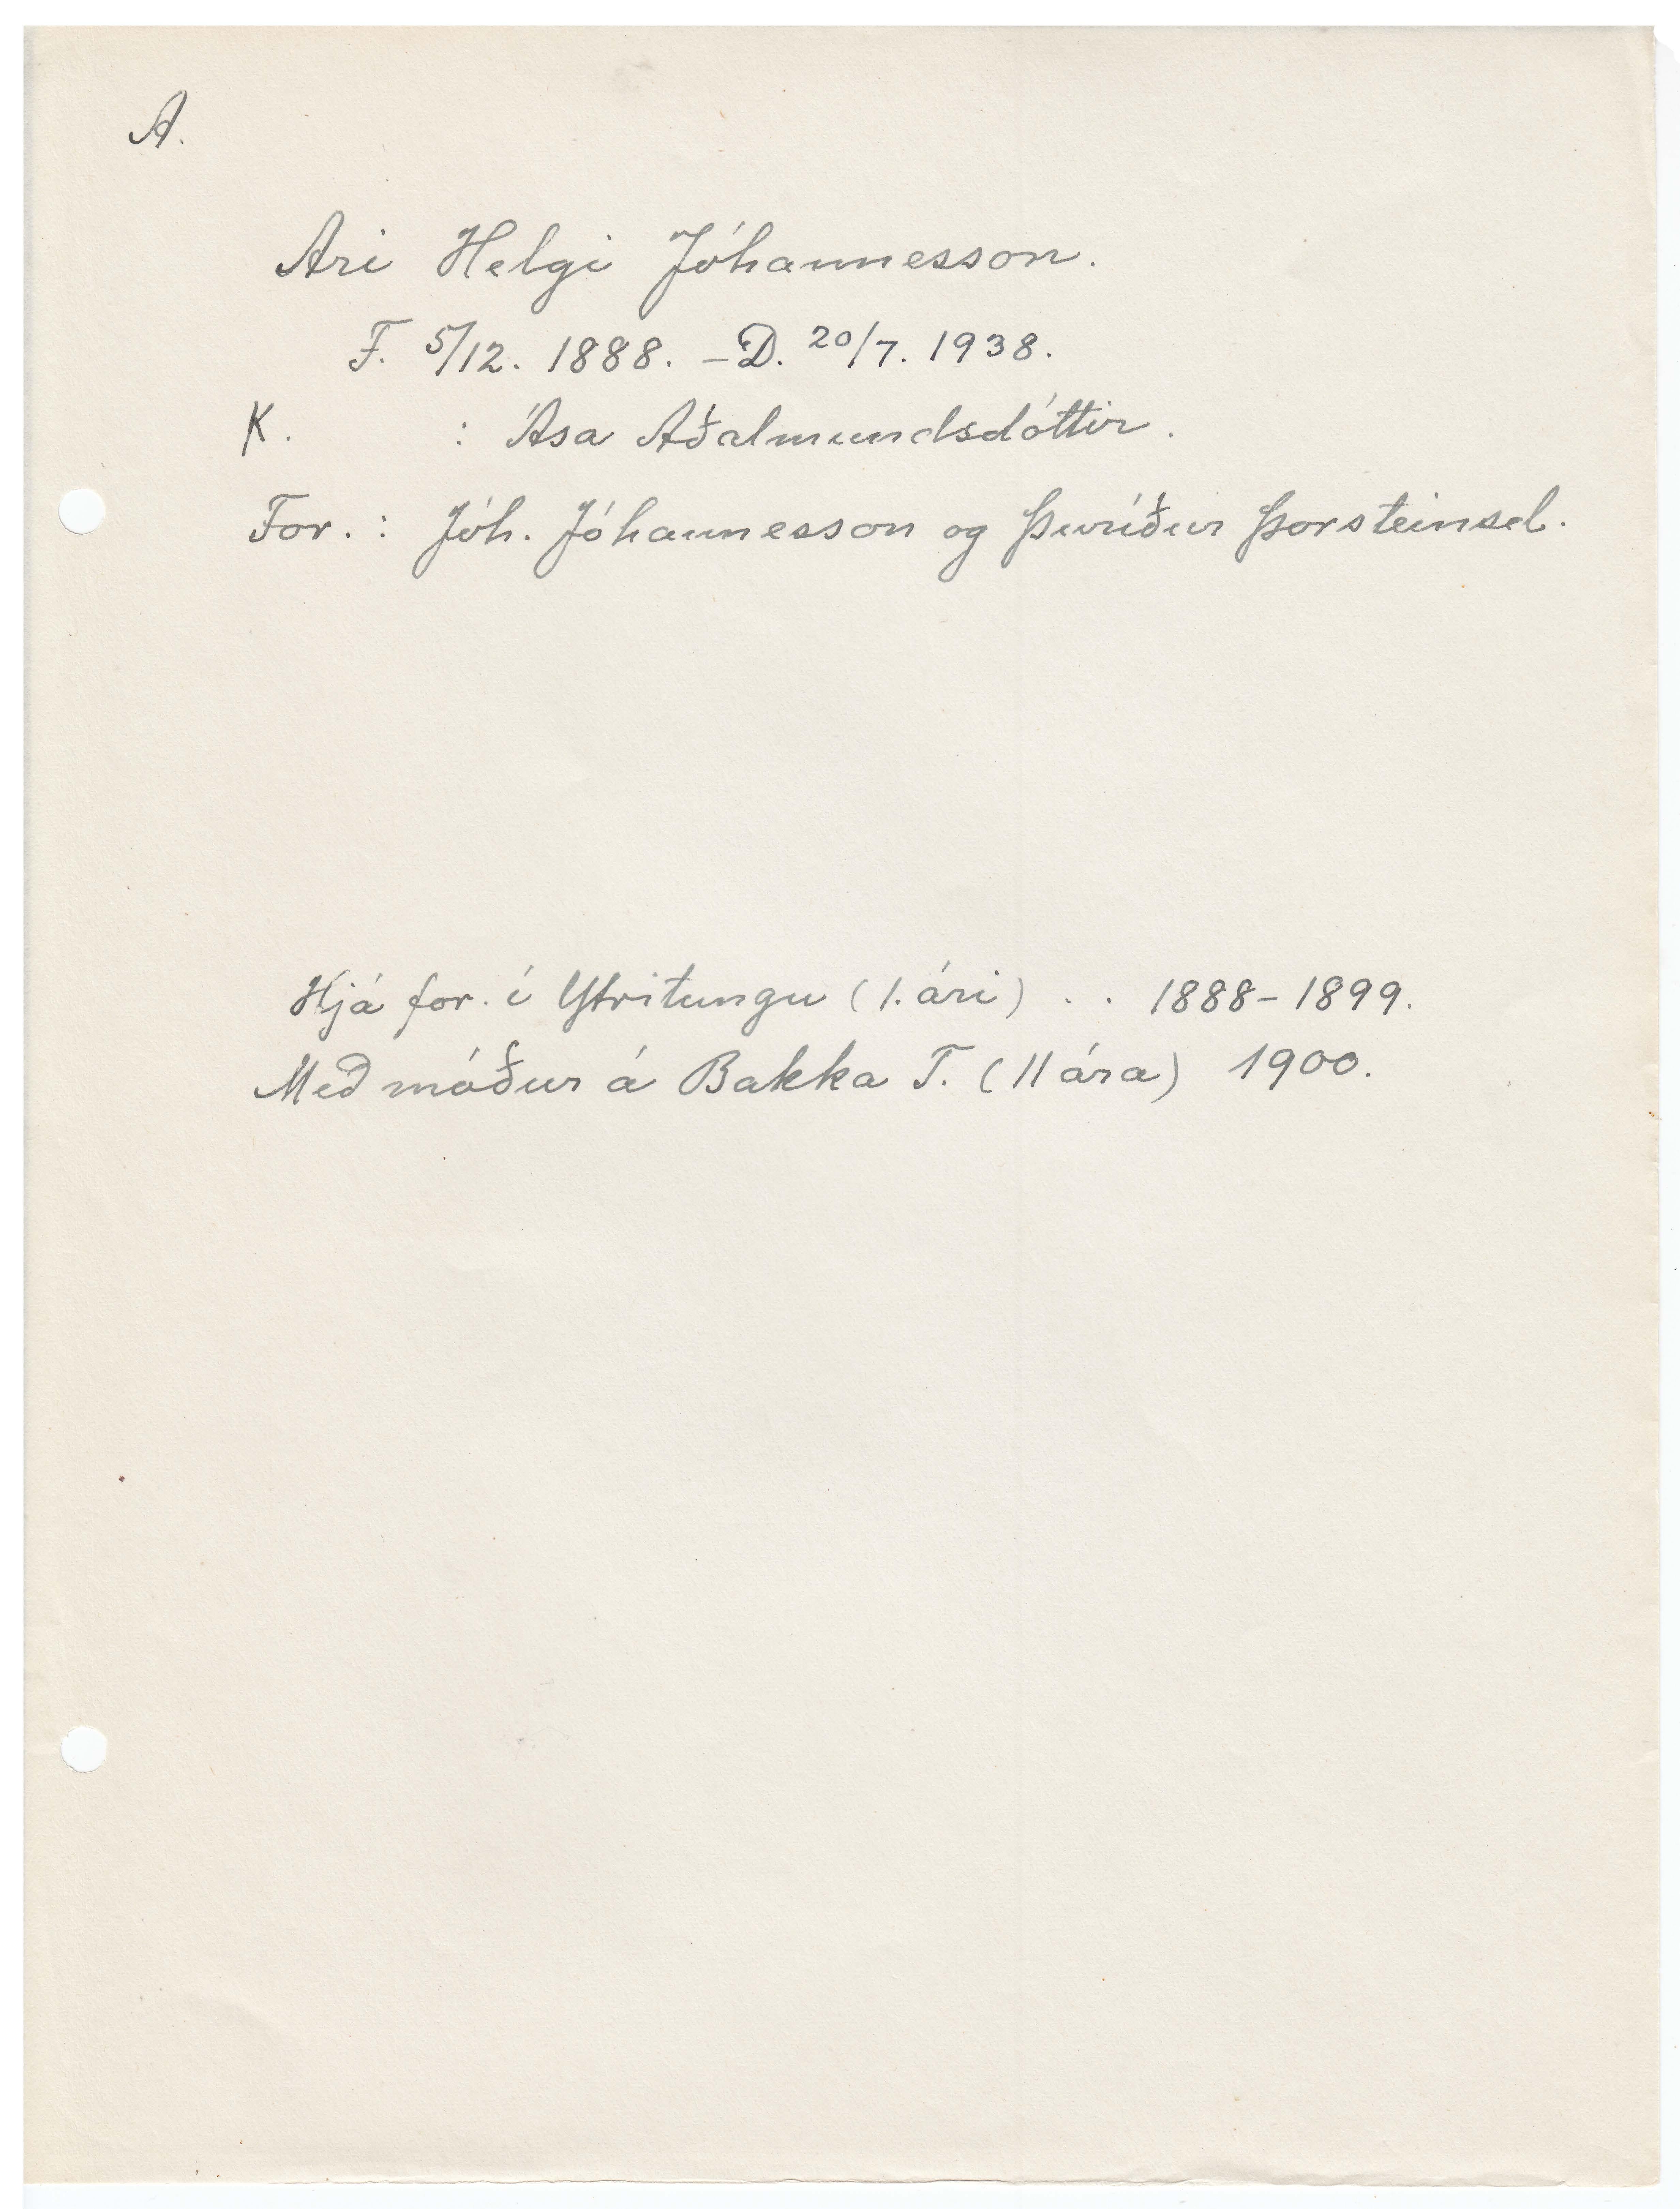 A.
Ari Helgi Jóhannesson.
F. 5/12. 1888. – D. 20/7. 1938.
K. : Ása Aðalmundsdóttir.
For. : Jóh. Jóhannesson og Þuríður Þorsteinsd.
Hjá for. í Ytritungu (1. ári) . . 1888–1899.
Með móður á Bakka T. (11 ára) 1900.